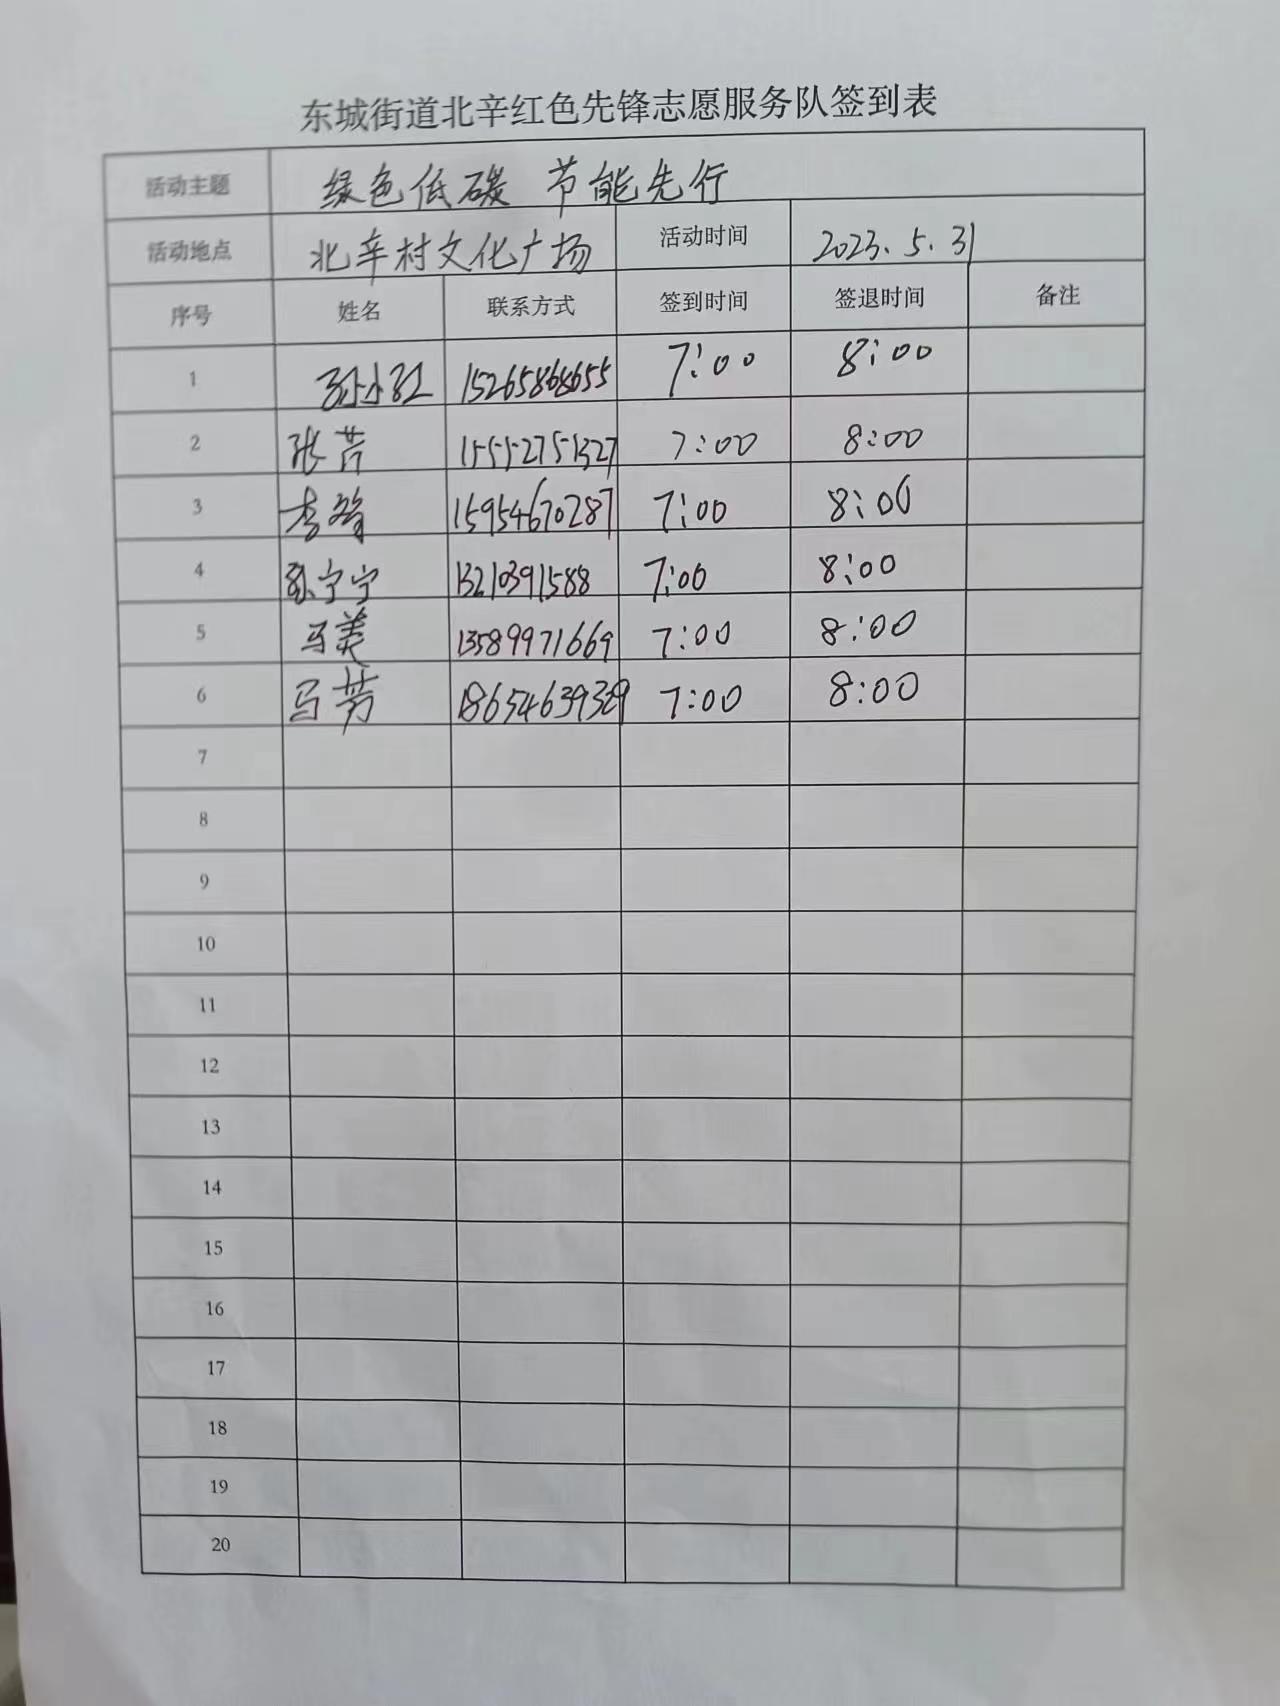 东城街道北辛红色先锋志愿服务队签到表
活动主题 绿色低碳 节能先行
活动地点 北辛村文化广场 活动时间 2023.5.31
序号 姓名 联系方式 签到时间 签退时间 备注
1 孙小红 15265868655 7:00 8:00
2 张芳 15552751327 7:00 8:00
3 李 15954670287 7:00 8:00
4 孙宁宁 13210391588 7:00 8:00
5 马美 13589971669 7:00 8:00
6 马芳 18654639329 7:00 8:00
7
8
9
10
11
12
13
14
15
16
17
18
19
20